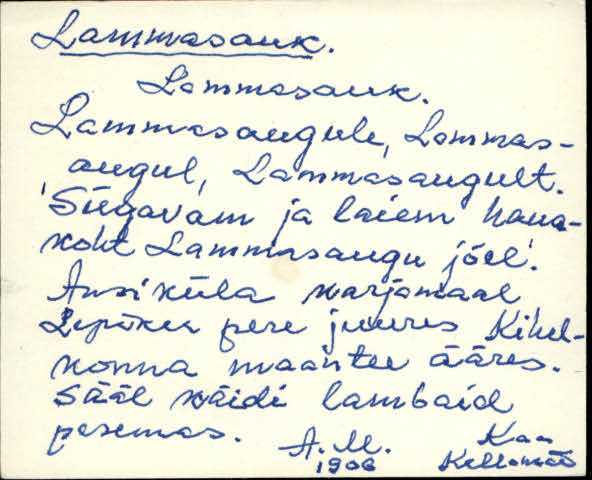 Lammasauk.
Lammasauk.
Lammasaugule, Lammas-
augul, Lammasaugult.
'Sügavam ja laiem haua-
koht Lammasaugu jõel'.
Ansiküla karjamaal
Lepiku pere juures Kihel-
konna maantee ääres.
Sääl käidi lambaid
pesemas.
A.M. Kaa
1906 Kellamäe